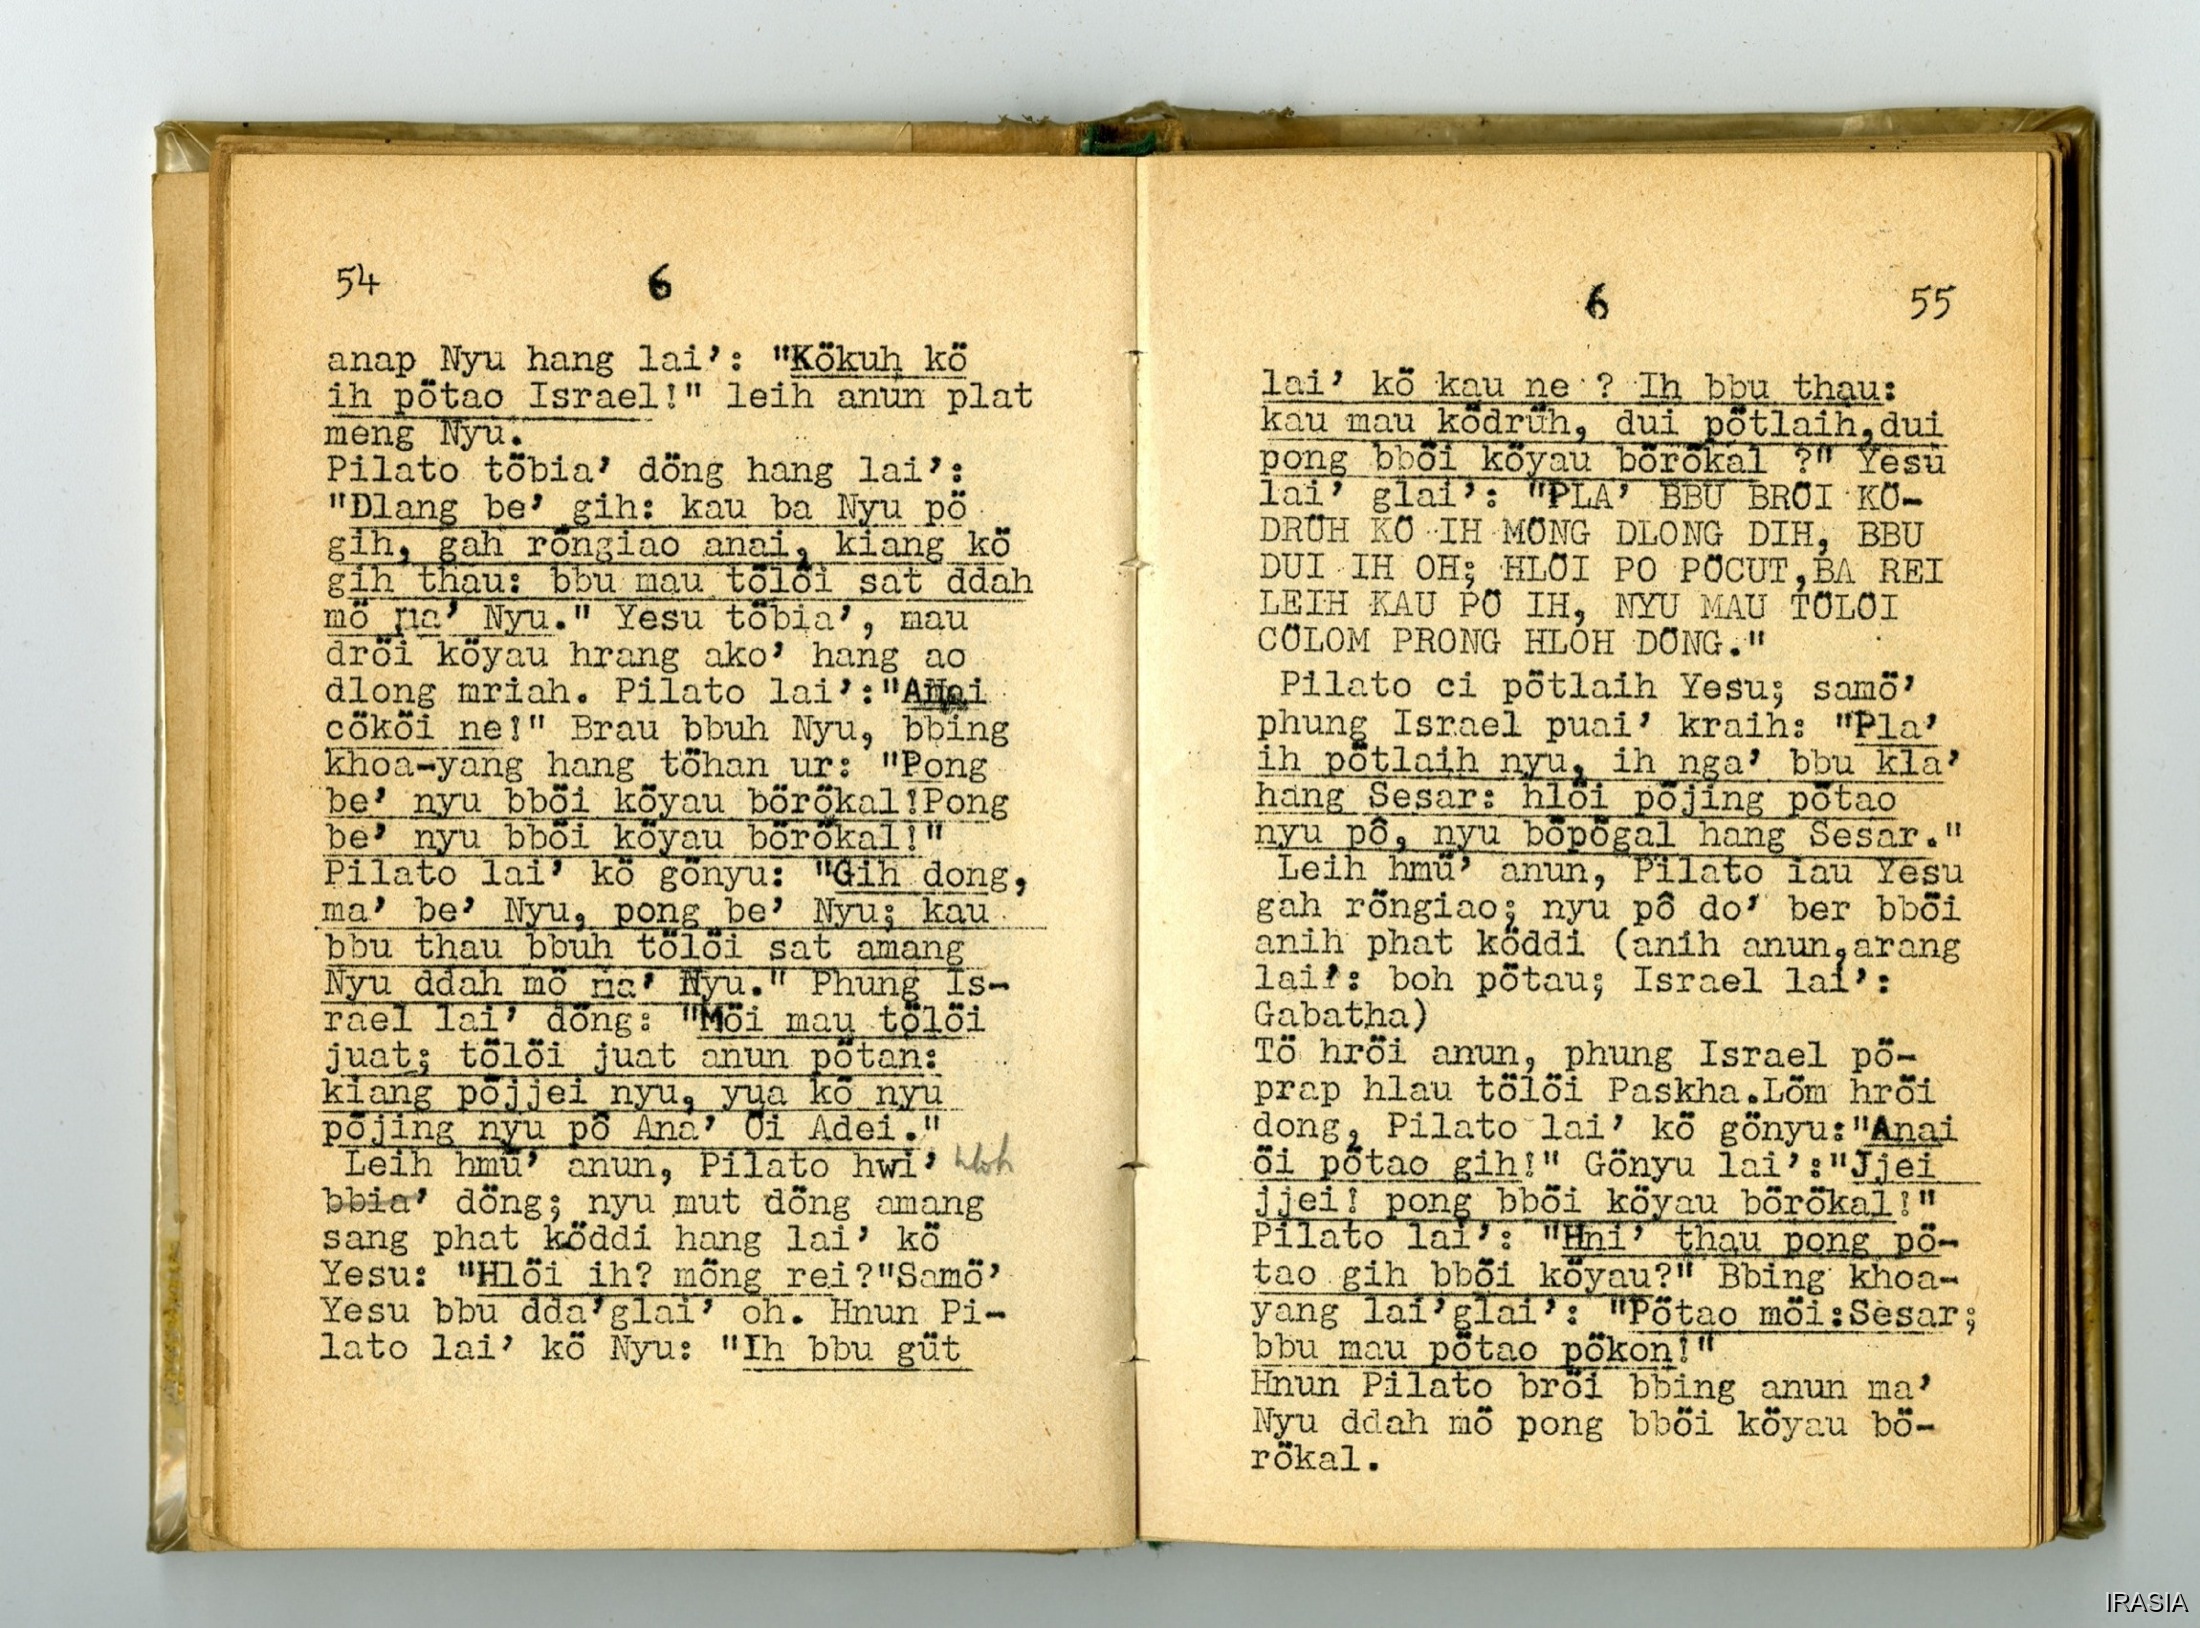 54 6
anap Nyu hang lai’: "Kökuh kö
ih pötao Israel!" leih anun plat
meng Nyu.
Pilato töbia’ döng hang lai’:
"Dlang be’ gih: kau ba Nyu pö
gih, gah röngiao anai, kiang kö
gih thau: bbu mau tölöi sat ddah
mö na’ Nyu." Yesu töbia’, mau
dröi köyau hrang ako’ hang ao
dlong mriah. Pilato lai’:"Anai
cököi ne!" Brau bbuh Nyu, bbing
khoa-yang hang töhan ur: "Pong
be’ nyu bböi köyau börökal!Pong
be’ nyu bböi köyau börökal!"
Pilato lai’ kö gönyu: "Gih dong,
ma’ be’ Nyu, pong be’ Nyu; kau
bbu thau bbuh tölöi sat amang
Nyu ddah mö na’ Nyu." Phung Is-
rael lai’ döng: "Möi mau tölöi
juat; tölöi juat anun pötan:
kiang pöjjei nyu, yua kö nyu
pöjing nyu pô Ana’ Öi Adei."
Leih hmü’ anun, Pilato hwi’ hloh
bbia’ döng; nyu mut döng amang
sang phat köddi hang lai’ kö
Yesu: "Hlöi ih? möng rei?"Samö’
Yesu bbu dda’glai’ oh. Hnun Pi-
lato lai’ kö Nyu: "Ih bbu güt
6 55
lai’ kö kau ne ? Ih bbu thau:
kau mau ködrüh, dui pötlaih,dui
pong bböi köyau börökal ?" Yesu
lai’ glai’: "PLA’ BBU BRÖI KÖ-
DRÜH KÖ IH MÖNG DLONG DIH, BBU
DUI IH OH; HLÖI PO PÖCUT,BA REI
LEIH KAU PÖ IH, NYU MAU TÖLÖI
CÖLOM PRONG HLOH DÖNG."
Pilato ci pötlaih Yesu; samö’
phung Israel puai’ kraih: "Pla’
ih pötlaih nyu, ih nga’ bbu kla’
hang Sesar: hlöi pöjing pötao
nyu pô, nyu böpögal hang Sesar."
Leih hmü’ anun, Pilato iau Yesu
gah röngiao; nyu pô do’ ber bböi
anih phat köddi (anih anun,arang
lai’: boh pötau; Israel lai’:
Gabatha)
Tö hröi anun, phung Israel pö-
prap hlau tölöi Paskha.Löm hröi
dong, Pilato lai’ kö gönyu:"Anai
öi pötao gih!" Gönyu lai’:"Jjei
jjei! pong bböi köyau börökal!"
Pilato lai’: "Hni’ thau pong pö-
tao gih bböi köyau?" Bbing khoa-
yang lai’glai’: "Pötao möi:Sesar;
bbu mau pötao pökon!"
Hnun Pilato bröi bbing anun ma’
Nyu ddah mö pong bböi köyau bö-
rökal.
IRASIA